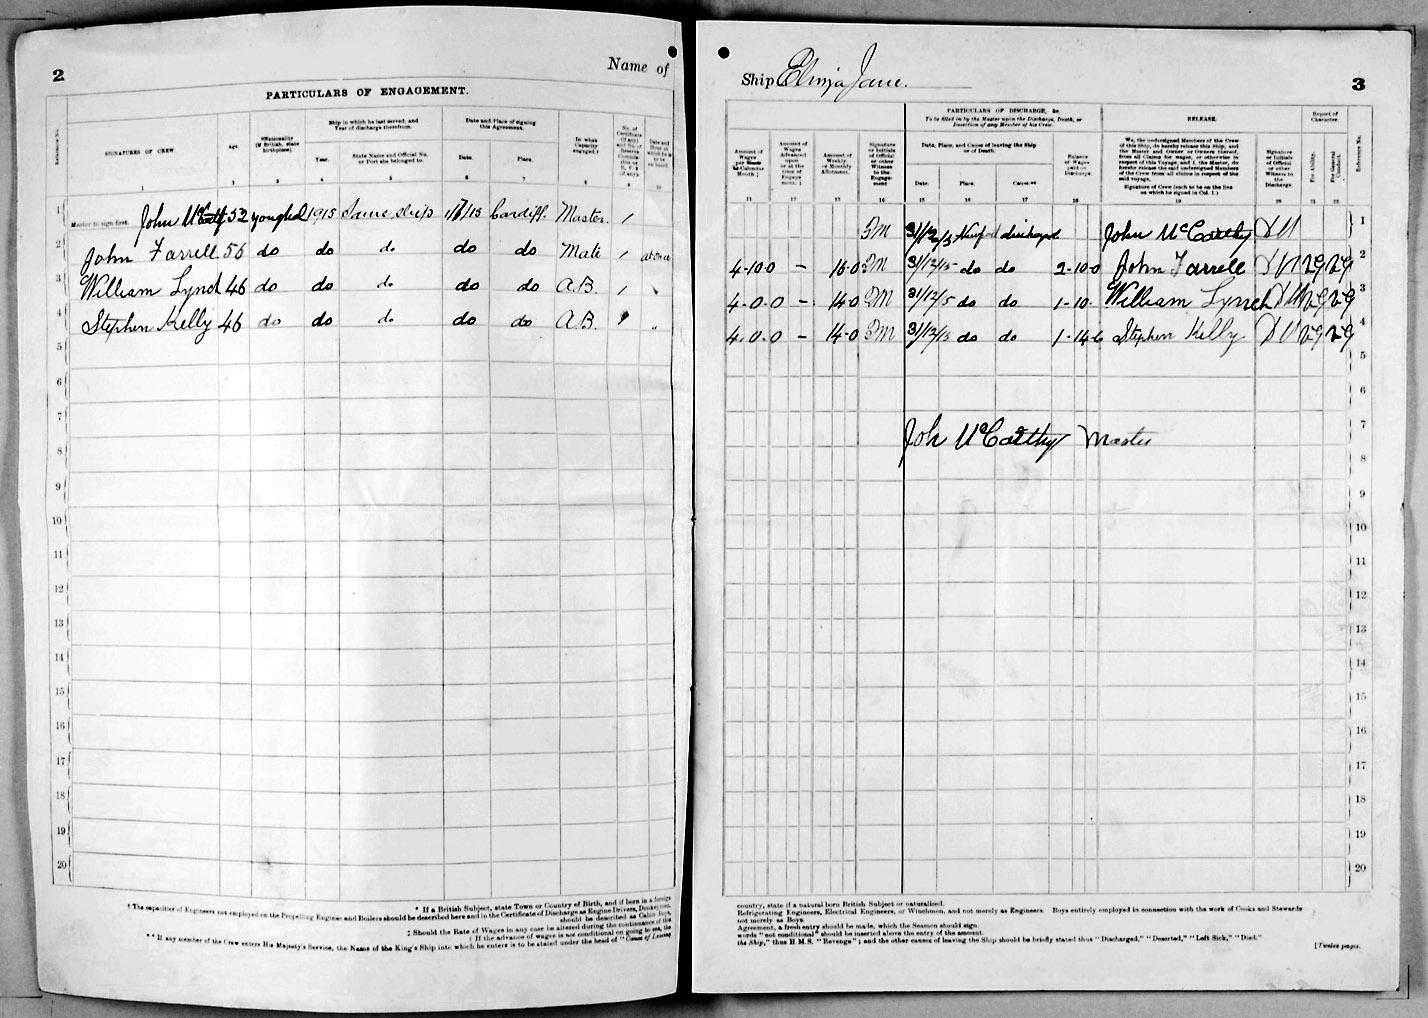 2
Name of
PARTICULARS OF ENGAGEMENT.
Reference No.
SIGNATURES OF CREW.
Age
*Nationality (If British, state birthplace).
Ship in which he last served, and Year of discharge therefrom.
Year.
State Name and Official No. or Port she belonged to.
Date and Place of signing this Agreement.
Date.
Place.
In what Capacity engaged.†
1 2 3 4 5 6 7 8 9 10
1 Master to sign first. John McCarthy 52 youghal 1915 Same ship 1/7/15 Cardiff. Master. /
2 John Farrell 56 do do do do do Mate / at once
3 William Lynch 46 do do do do do A.B. /
4 Stephen Kelly 46 do do do do do A.B.
5
6
7
8
9
10
11
12
13
14
15
16
17
18
19
20
* If a British Subject, state Town or Country of Birth, and if born in a foreign
† The capacities of Engineers not employed on the Propelling Engines and Boilers should be described here and in the Certificate of Discharge as Engine Drivers, Donkeymen,
should be described as Cabin Boys,
‡ Should the Rate of Wages in any case be altered during the continuance of this
‡ If the advance of wages is not conditional on going to sea, the
** If any member of the Crew enters His Majesty's Service, the Name of the King's Ship into which he enters is to be stated under the head of "Cause of Leaving
Ship Eliza Jane.
3
PARTICULARS OF DISCHARGE, &c.
To be filled in by the Master upon the Discharge, Death, or Desertion of any Member of his Crew.
RELEASE.
Report of Character.
Amount of Wages per Calendar Month ‡
Amount of Wages Advanced upon or at the time of Engagement. ‡
Amount of Weekly or Monthly Allotment.
Signature or Initials of Official or other Witness to the Engagement
Date, Place, and Cause of leaving the Ship or of Death.
Date.
Place.
Cause.**
Balance of Wages paid on Discharge.
We, the undersigned Members of the Crew of this Ship, do hereby release this Ship, and the Master and Owner or Owners thereof, from all Claims for wages, or otherwise in respect of this Voyage; and I, the Master, do hereby release the undersigned Members of the Crew from all claims in respect of the said voyage.
Signature of Crew (each to be on the line on which he signed in Col. 1.)
Signature or Initials of Official or other Witness to the Discharge.
For Ability.
For General Conduct.
Reference No.
11 12 13 14 15 16 17 18 19 20 21 22
31/12/15 discharged John McCarthy 1
4-10-0 – 16-0 31/12/15 do do 2-10-0 John Farrell VG VG 2
4-0-0 – 14-0 31/12/15 do do 1-10- William Lynch VG VG 3
4-0-0 – 14-0 31/12/15 do do 1-14-6 Stephen Kelly VG VG 4
5
6
7
John McCarthy Master
8
9
10
11
12
13
14
15
16
17
18
19
20
country, state if a natural born British Subject or naturalized.
Refrigerating Engineers, Electrical Engineers, or Winchmen, and not merely as Engineers. Boys entirely employed in connection with the work of Cooks and Stewards
not merely as Boys.
Agreement, a fresh entry should be made, which the Seamen should sign.
words "not conditional" should be inserted above the entry of the amount.
the Ship," thus H.M.S. "Revenge"; and the other causes of leaving the Ship should be briefly stated thus "Discharged," "Deserted," "Left Sick," "Died."
[Twelve pages.